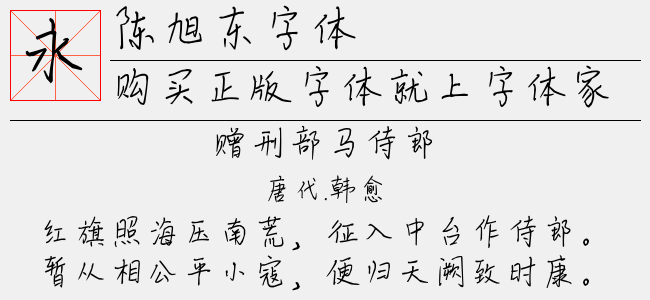 永
陈旭东字体
购买正版字体就上字体家
赠刑部马侍郎
唐代.韩愈
红旗照海压南荒，征入中台作侍郎。
暂从相公平小寇，便归天阙致时康。